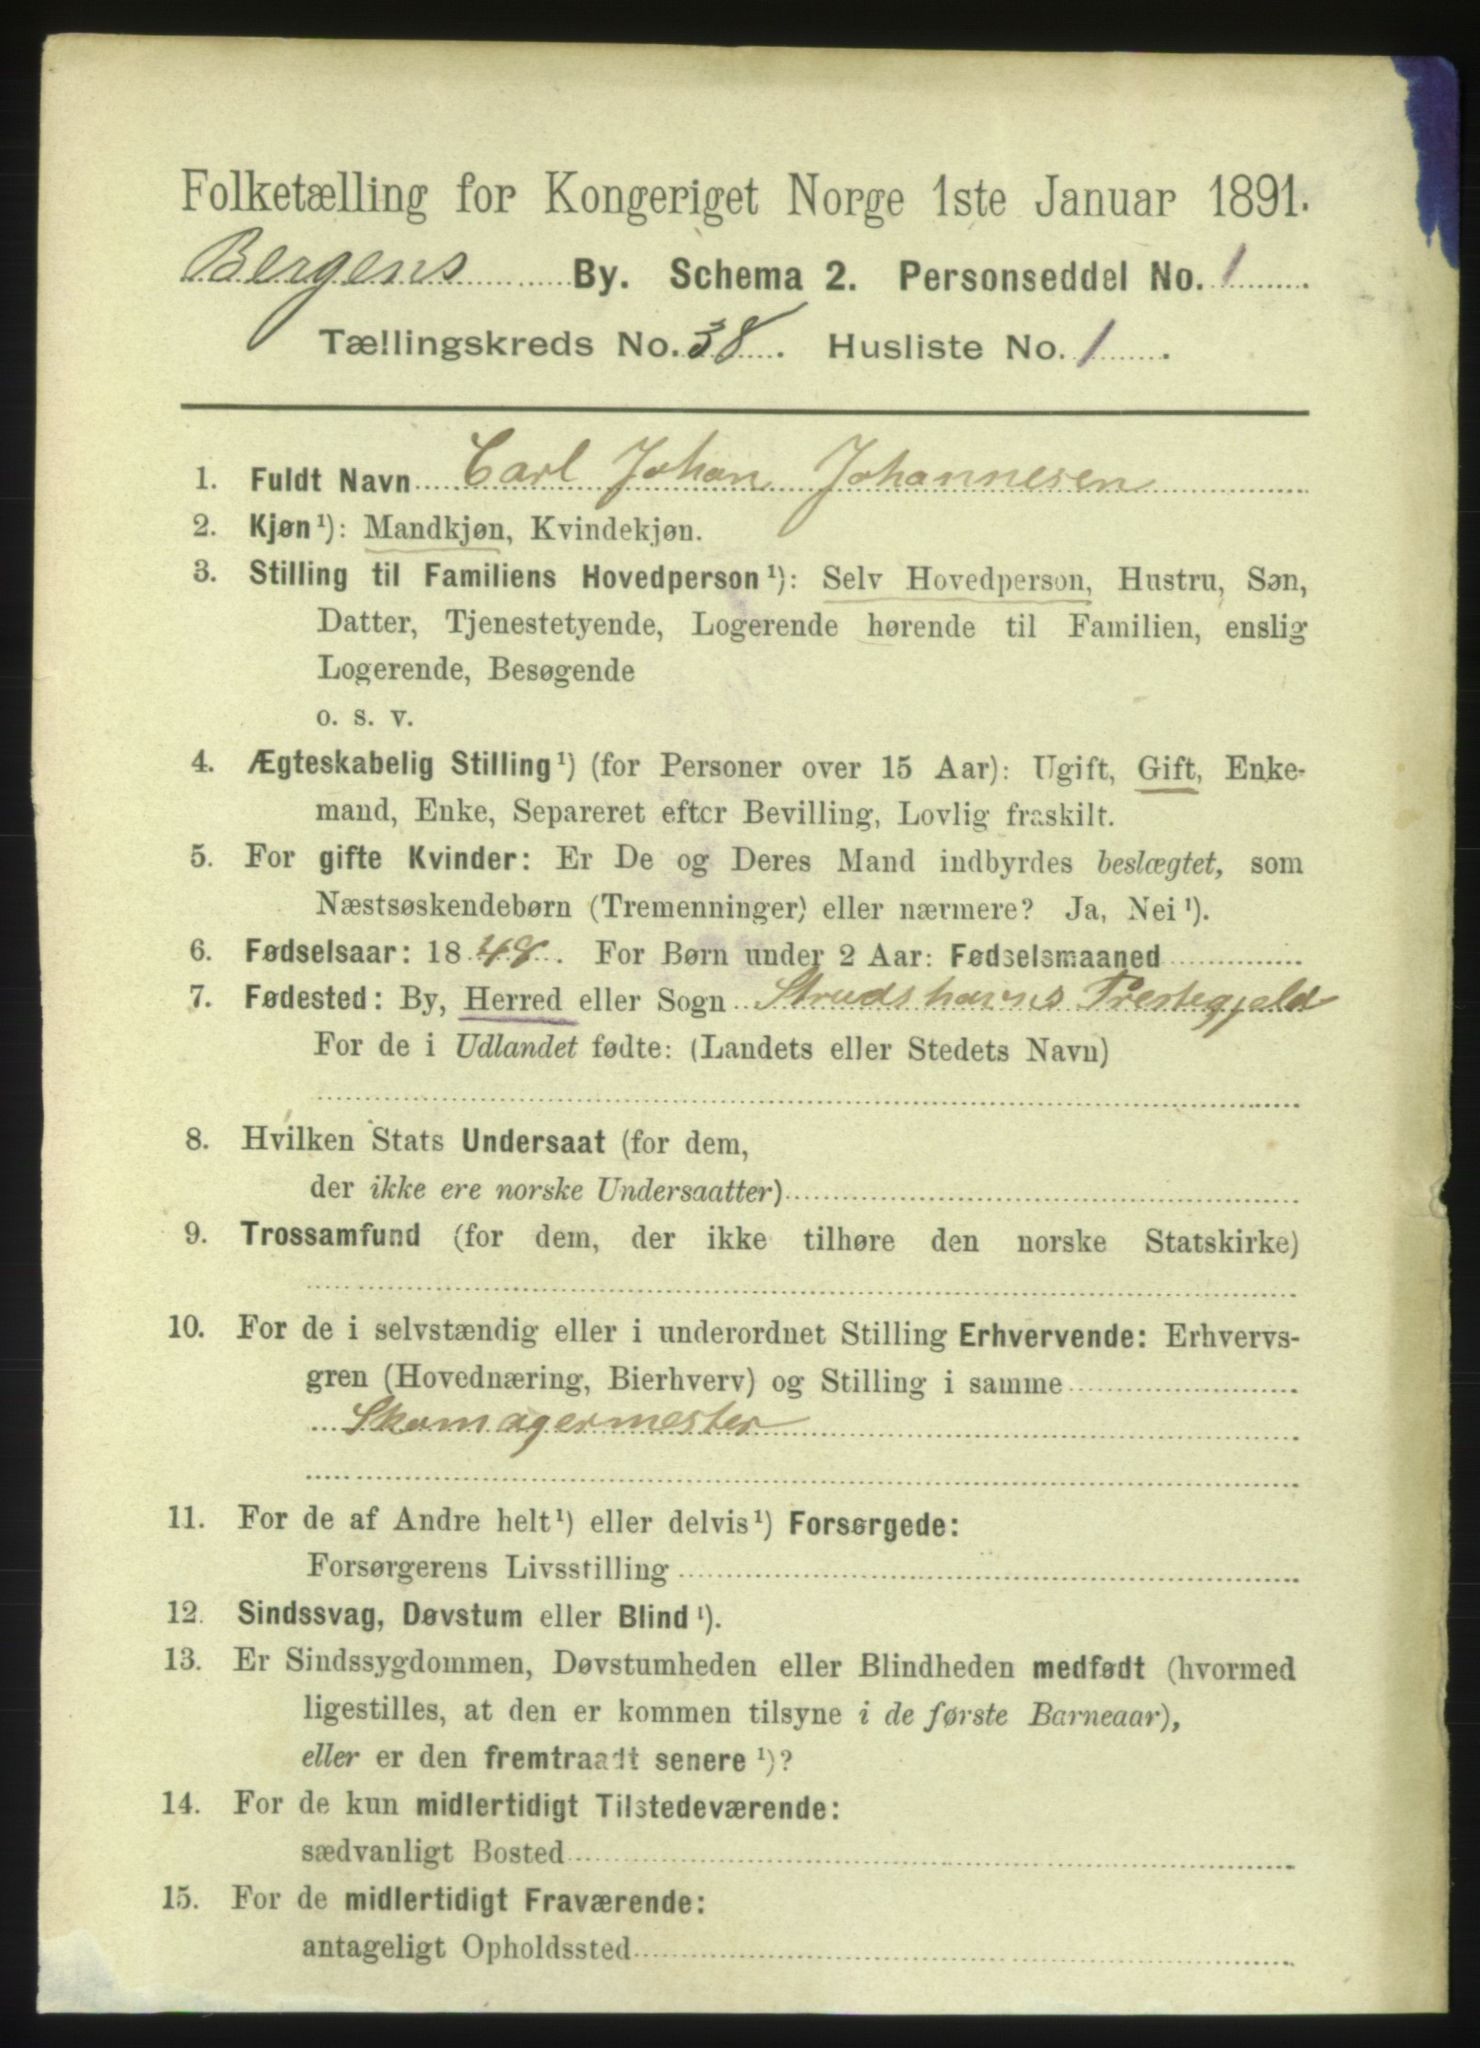 Folketælling for Kongeriget Norge 1ste Januar 1891.
Bergens By. Schema 2. Personseddel No. 1
Tællingskreds No. 38. Husliste No. 1.
1. Fuldt Navn Carl Johan Johannesen
2. Kjøn¹): Mandkjøn, Kvindekjøn.
3. Stilling til Familiens Hovedperson¹): Selv Hovedperson, Hustru, Søn,
Datter, Tjenestetyende, Logerende hørende til Familien, enslig
Logerende, Besøgende
o. s. v.
4. Ægteskabelig Stilling¹) (for Personer over 15 Aar): Ugift, Gift, Enke-
mand, Enke, Separeret efter Bevilling, Lovlig fraskilt.
5. For gifte Kvinder: Er De og Deres Mand indbyrdes beslægtet, som
Næstsøskendebørn (Tremenninger) eller nærmere? Ja, Nei¹).
6. Fødselsaar: 1848. For Børn under 2 Aar: Fødselsmaaned
7. Fødested: By, Herred eller Sogn Strudshavns Prestegjæld
For de i Udlandet fødte: (Landets eller Stedets Navn)
8. Hvilken Stats Undersaat (for dem,
der ikke ere norske Undersaatter)
9. Trossamfund (for dem, der ikke tilhøre den norske Statskirke)
10. For de i selvstændig eller i underordnet Stilling Erhvervende: Erhvervs-
gren (Hovednæring, Bierhverv) og Stilling i samme
Skomagermester
11. For de af Andre helt¹) eller delvis¹) Forsørgede:
Forsørgerens Livsstilling
12. Sindssvag, Døvstum eller Blind¹).
13. Er Sindssygdommen, Døvstumheden eller Blindheden medfødt (hvormed
ligestilles, at den er kommen tilsyne i de første Barneaar),
eller er den fremtraadt senere¹)?
14. For de kun midlertidigt Tilstedeværende:
sædvanligt Bosted
15. For de midlertidigt Fraværende:
antageligt Opholdssted